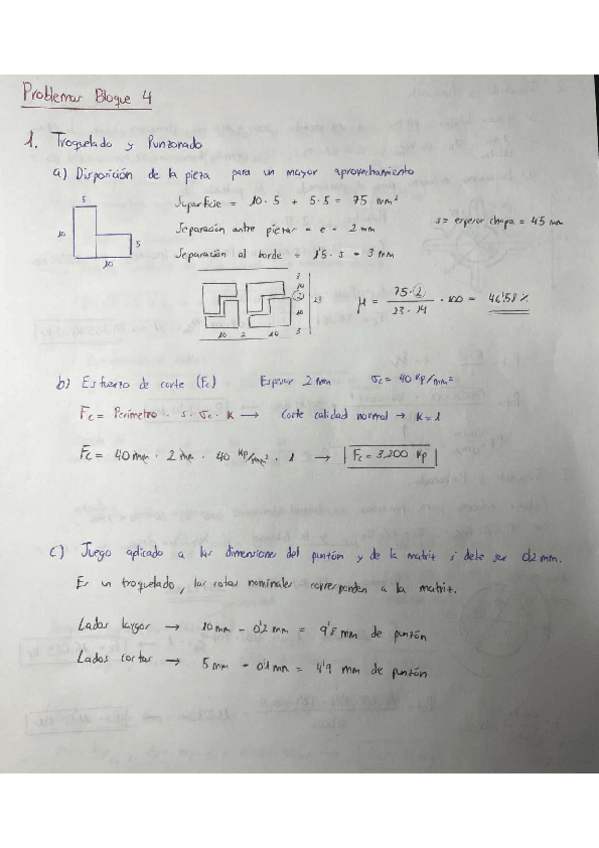 Problemas Bloque 4
1. Troquelado y Punzonado
a) Disposición de la pieza para un mayor aprovechamiento
5
10
5
10
Superficie = 10 · 5 + 5 · 5 = 75 mm²
Separación entre piezas = e = 2 mm
s = espesor chapa = 45 mm
Separación al borde = 1'5 · s = 3 mm
3
10
2
10
3
23
10 2 10
μ = 75·2 / 23·14 · 100 = 46'58 %
b) Esfuerzo de corte (Fc) Espesor 2 mm σc = 40 Kp/mm²
Fc = Perímetro · s · σc · K → Corte calidad normal → K = 1
Fc = 40 mm · 2 mm · 40 Kp/mm² · 1 → Fc = 3,200 Kp
c) Juego aplicado a las dimensiones del punzón y de la matriz si debe ser 0,2 mm.
Es un troquelado, las cotas nominales corresponden a la matriz.
Lados largos → 10 mm - 0'2 mm = 9'8 mm de punzón
Lados cortos → 5 mm - 0'1 mm = 4'9 mm de punzón